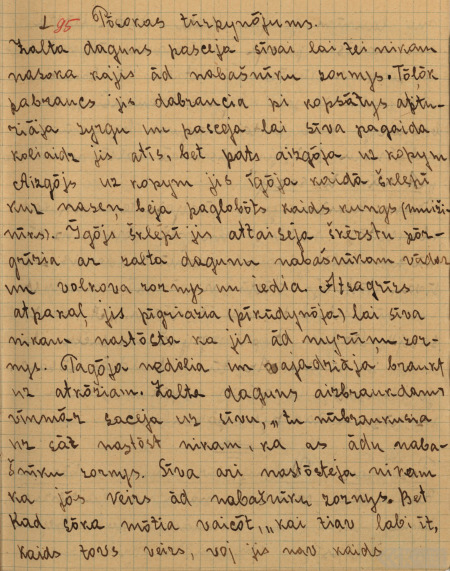 195 Posokas tūrpynōjums.
Zalta daguns pasceja sīvai lai tei nikam
nasoka kajis ād nabašnīku zornys. Tōļōk
pabraucs jis dabraucia pi kopsātys aptu-
riāja zyrgu un pasceja lai sīva pagaida
koliaidz jis atīs, bet pats aizgōja uz kopym
Aizgōjs uz kopym jis īgōja kaidā šklepī
kur naseņ beja paglobōts kaids kungs (muiži-
nīks). Īgōjs šklepī jis attaiseja škērstu pōr-
grīzia ar zalta dagunu nabašnīkam vādaru
un volkova zornys un iedia. Atsagrīzs
atpakaļ jis pīgriazia (pīkūdynōja) lai sīva
nikam nastōsta ka jis ād myrūņu zor-
nys. Pagōja nedēlia un vajadziāja braukt
uz atkōziam. Zalta daguns aizbraukdams
vīnmār saceja uz sīvu, „tu nūbraukusia
uz sāt nastōst nikam, ka as ādu naba-
šnīku zornys. Sīva ari nastōsteja nikam
ka jōs veirs ād nabašnīku zornys. Bet
kad sōka mōtia vaicōt, „kai ziav labi īt,
kaids tovs veirs, voj jis nav kaids